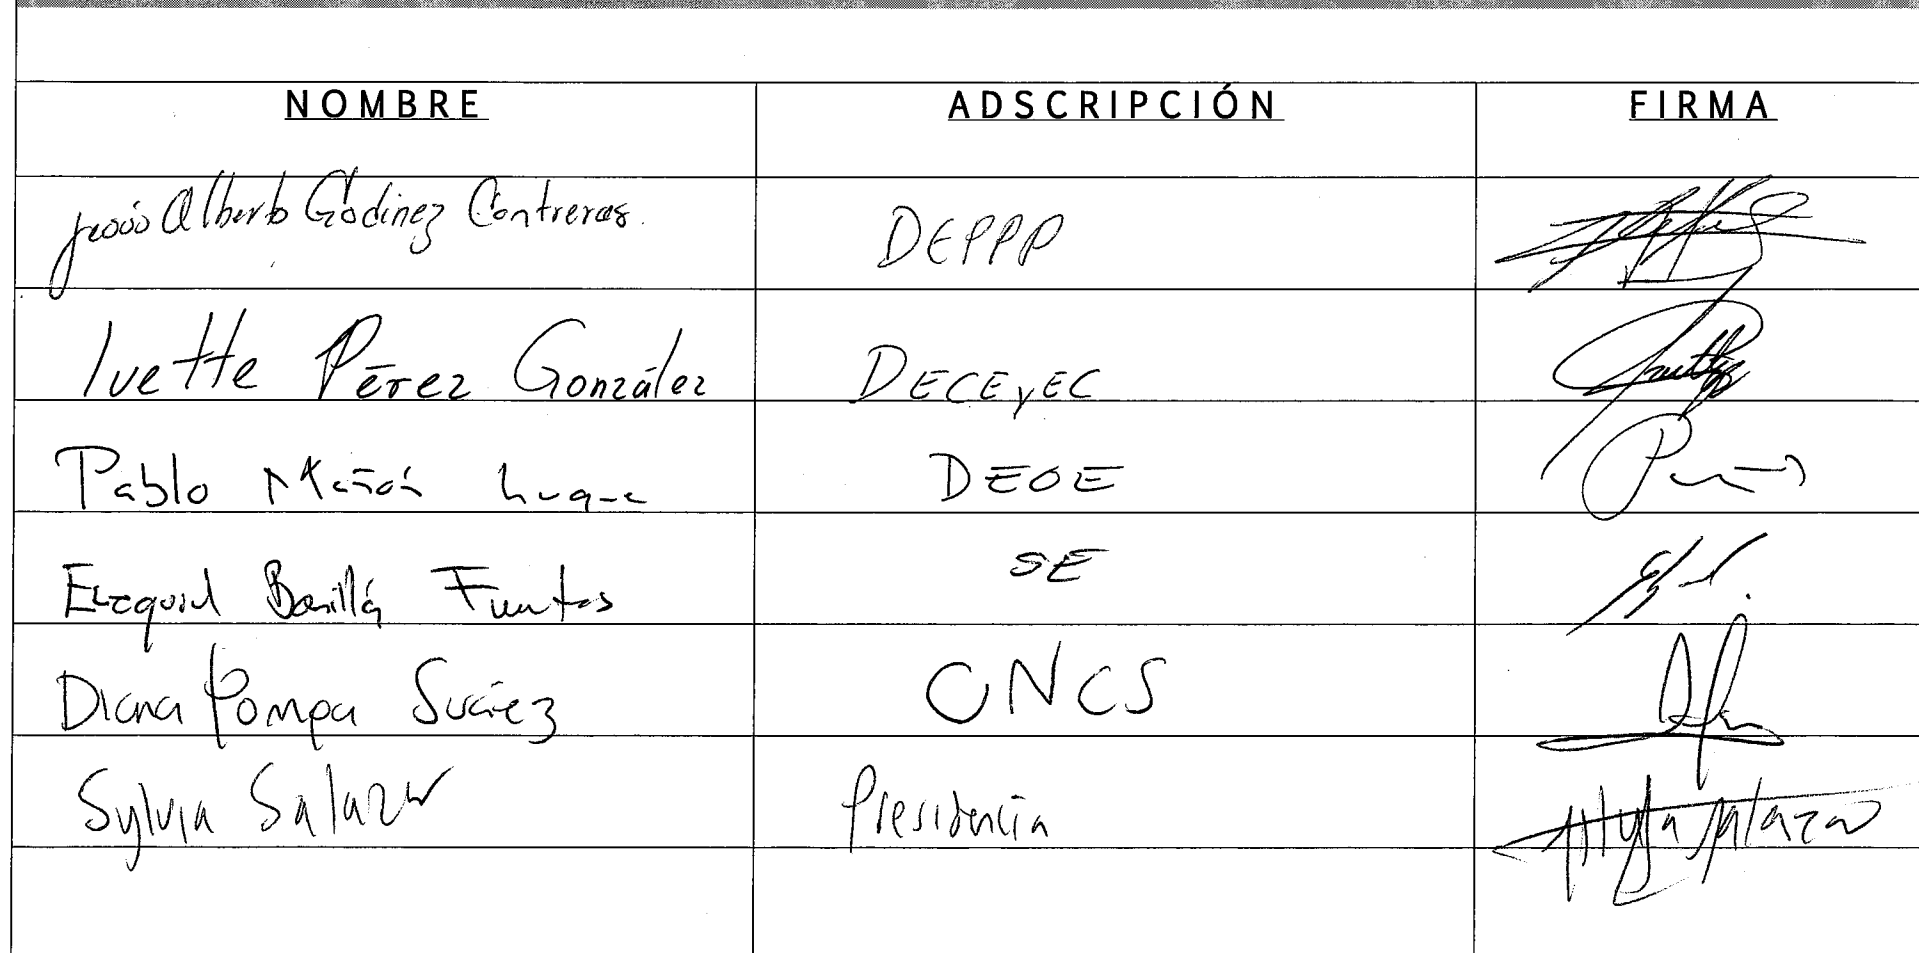 NOMBRE ADSCRIPCIÓN FIRMA
Jesús Alberto Godinez Contreras. DEPPP
Ivette Pérez González DECEyEC
Pablo Mañón Luque DEOE
Ezequiel Bonilla Fuentes SE
Diana Pompa Suárez CNCS
Sylvia Salazar Presidencia Sylvia Salazar